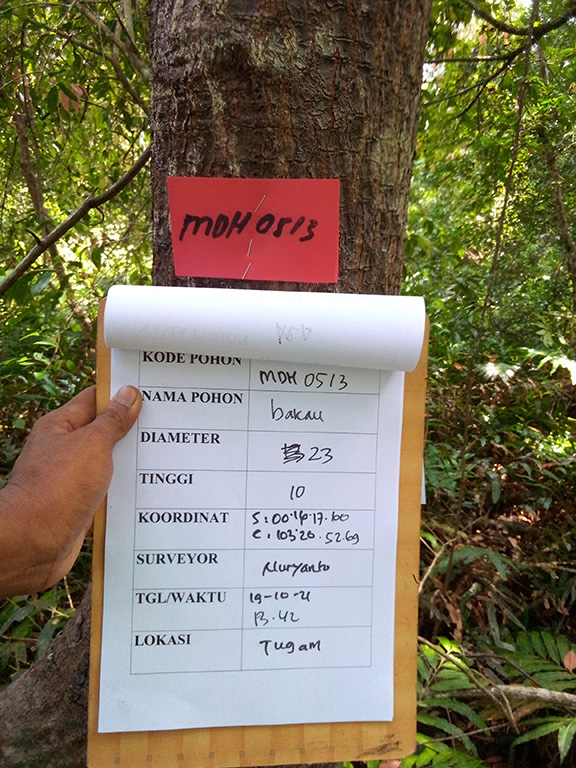 MDH 0513
KODE POHON MDH 0513
NAMA POHON bakau
DIAMETER 23
TINGGI 10
KOORDINAT S : 00·14·17.60
E : 103°20·52.69
SURVEYOR Nuryanto
TGL/WAKTU 19-10-21
13.42
LOKASI Tugam